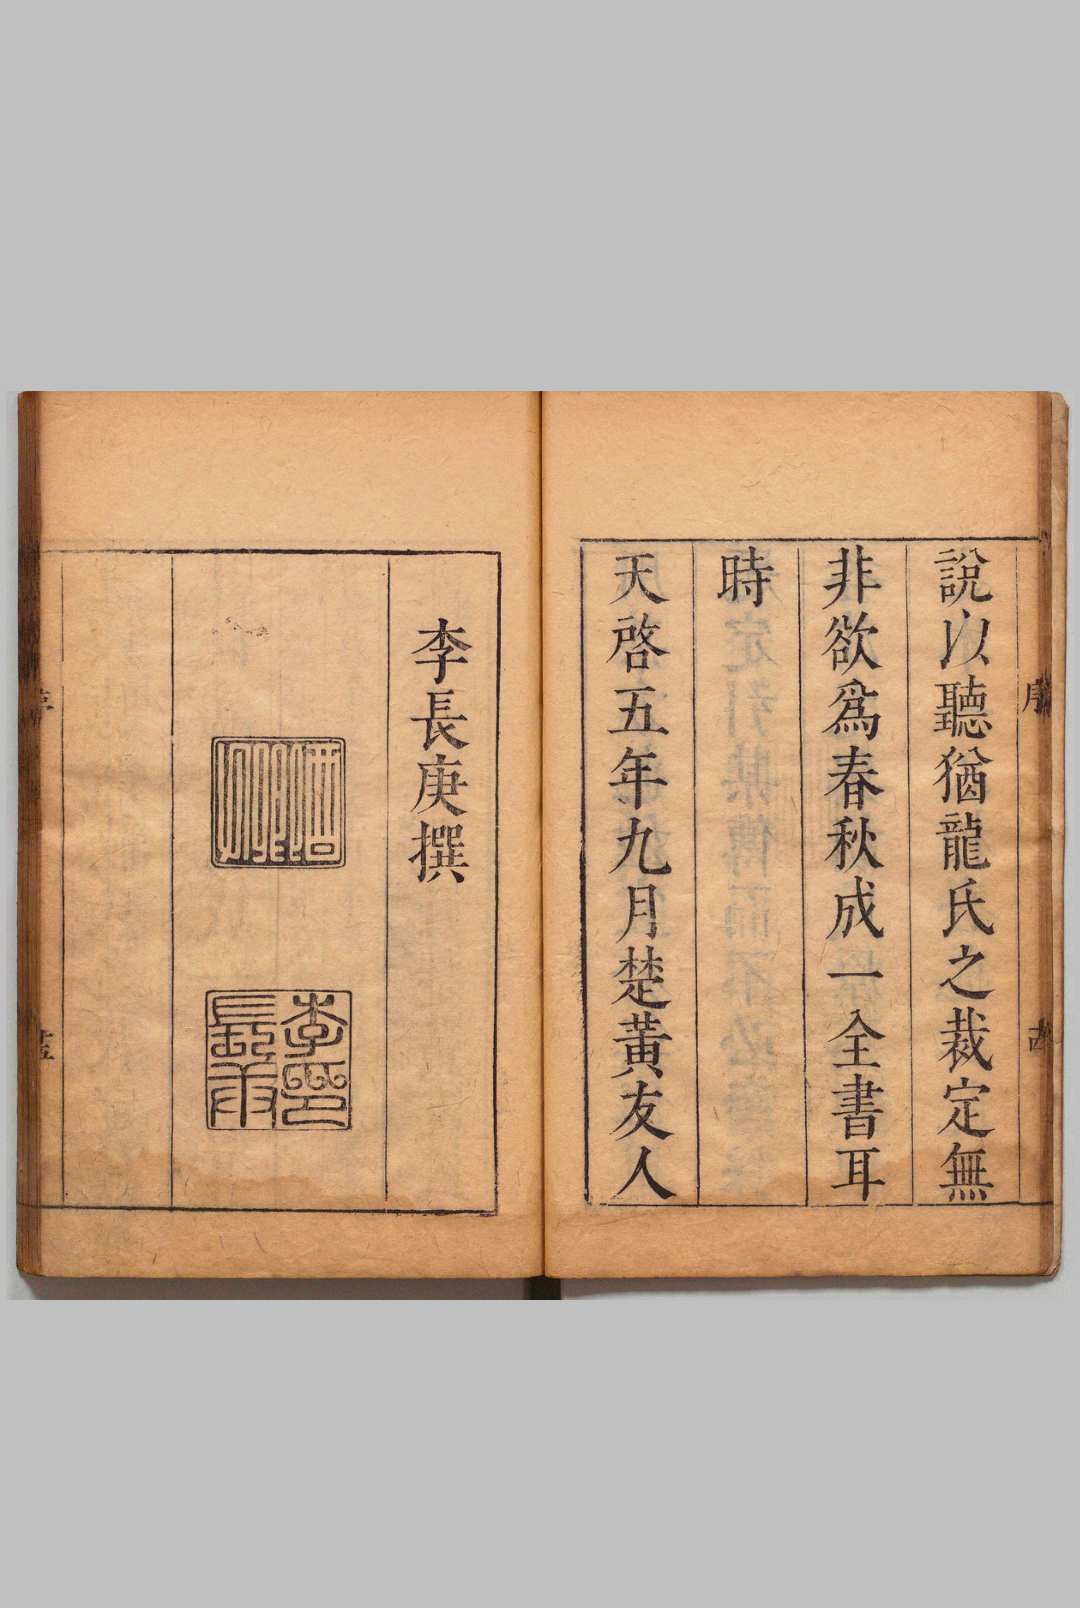 序
說以聽猶龍氏之裁定無
非欲爲春秋成一全書耳
時
天啓五年九月楚黃友人
李長庚撰
李長庚印
十五